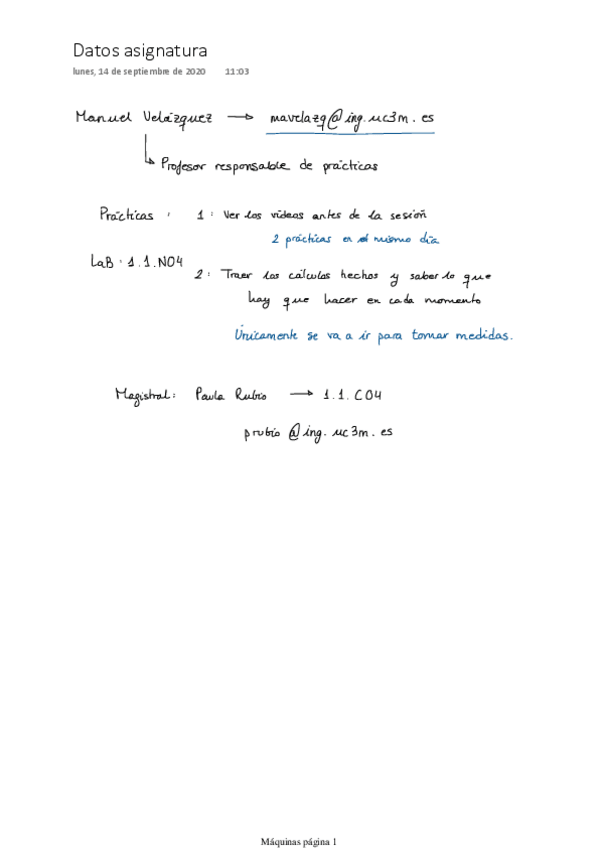 Datos asignatura
lunes, 14 de septiembre de 2020 11:03
Manuel Velázquez → mavelazq@ing.uc3m.es
↳ Profesor responsable de prácticas
Prácticas : 1: Ver los vídeos antes de la sesión
2 prácticas en el mismo día
LaB : 1.1.N04
2: Traer los cálculos hechos y saber lo que
hay que hacer en cada momento
Únicamente se va a ir para tomar medidas.
Magistral: Paula Rubio → 1.1.C04
prubio@ing.uc3m.es
Máquinas página 1